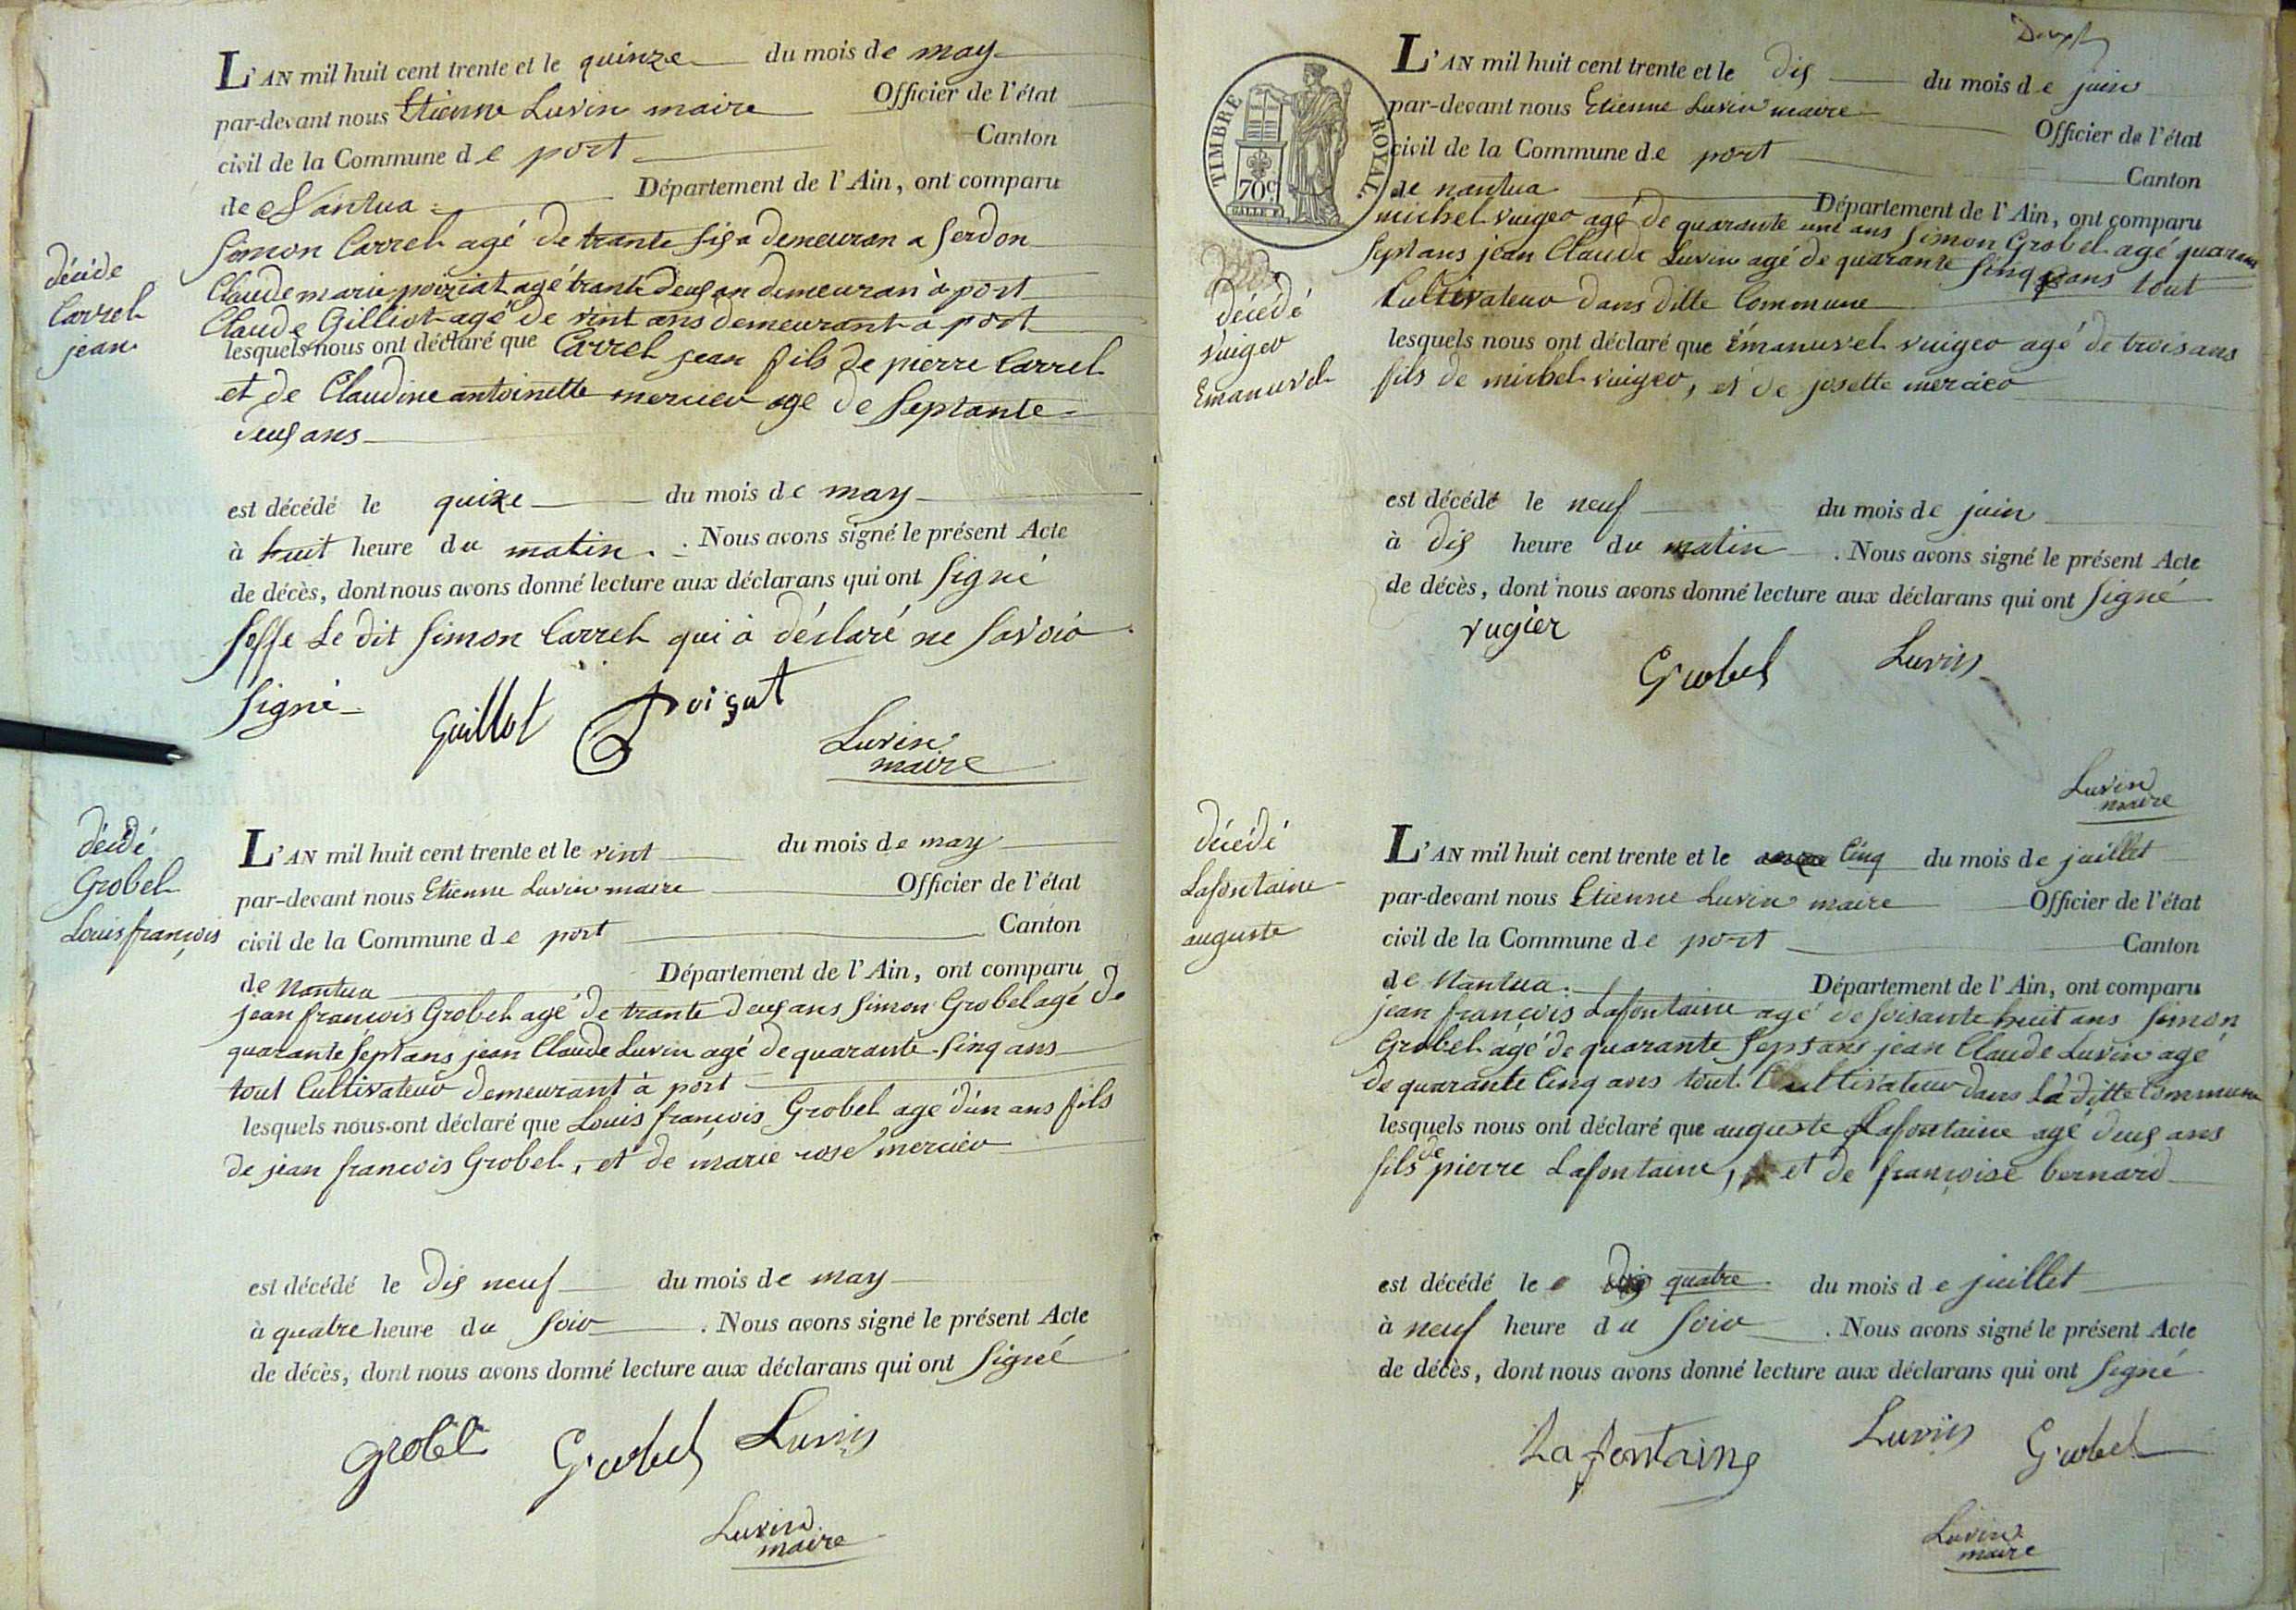 L'AN mil huit cent trente et le quinze du mois de may
par-devant nous Etienne Luvin maire Officier de l'état
civil de la Commune de port Canton
de Nantua Département de l'Ain, ont comparu
Simon Carrel agé de trante sis a demeuran a Serdon
Claude marie poiziat agé trante deus an demeuran à port
Claude Gilliot agé de vint ans demeurant a port
lesquels nous ont déclaré que Carrel jean fils de pierre Carrel
et de Claudine antoinette mercier age de Septante
deus ans
décide
Carrel
jean
est décédé le quize du mois de may
à huit heure du matin. Nous avons signé le présent Acte
de décès, dont nous avons donné lecture aux déclarans qui ont Signé
Soffe Le dit Simon Carrel qui à déclaré ne Savoir
Signé
Guillot Poizat
Luvin
maire
décidé
Grobel
Louis françois
L'AN mil huit cent trente et le vint du mois de may
par-devant nous Etienne Luvin maire Officier de l'état
civil de la Commune de port Canton
de Nantua Département de l'Ain, ont comparu
jean françois Grobel agé de trante deus ans Simon Grobel agé de
quarante Sept ans jean Claude Luvin agé de quarante Sinq ans
tout Cultivateur demeurant à port
lesquels nous ont déclaré que Louis françois Grobel age d'un ans fils
de jean françois Grobel, et de marie rose mercier
est décédé le dis neuf du mois de may
à quatre heure du Soir. Nous avons signé le présent Acte
de décès, dont nous avons donné lecture aux déclarans qui ont Signé
grobel Grobel Luvin
Luvin
maire
TIMBRE ROYAL
70c
L'AN mil huit cent trente et le dis du mois de juin
par-devant nous Etienne Luvin maire Officier de l'état
civil de la Commune de port Canton
de nantua Département de l'Ain, ont comparu
michel vuiger agé de quarante une ans Simon Grobel agé quarante
Sept ans jean Claude Luvin agé de quarante Sinq ans tout
Cultivateur dans ditte Commune
décédé
vuiger
Emanuvel
lesquels nous ont déclaré que Emanuvel vuiger agé de trois ans
fils de michel vuiger, et de josette mercier
est décédé le neuf du mois de juin
à dis heure du matin. Nous avons signé le présent Acte
de décès, dont nous avons donné lecture aux déclarans qui ont Signé
vugier
Grobel Luvin
Luvin
maire
décédé
Lafontaine
auguste
L'AN mil huit cent trente et le Cinq du mois de juillet
par-devant nous Etienne Luvin maire Officier de l'état
civil de la Commune de port Canton
de Nantua. Département de l'Ain, ont comparu
jean françois Lafontaine agé de soisante huit ans Simon
Grobel agé de quarante Sept ans jean Claude Luvin agé
de quarante Cinq ans tout Cultivateur dans La ditte Commune
lesquels nous ont déclaré que auguste Lafontaine agé deus ans
fils de pierre Lafontaine, et de françoise bernard
est décédé le quatre du mois de juillet
à neuf heure du Soir. Nous avons signé le présent Acte
de décès, dont nous avons donné lecture aux déclarans qui ont Signé
La fontaine Luvin Grobel
Luvin
maire